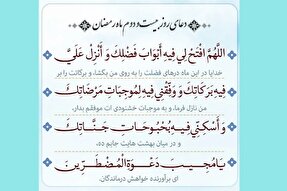 دعای روز بیست و دوم ماه رمضان
اللّهُمَّ افْتَحْ لِي فِيهِ أَبْوَابَ فَضْلِكَ وَ أَنْزِلْ عَلَيَّ
خدایا در این ماه درهای فضلت را به روی من بگشا، و برکاتت را بر
فِيهِ بَرَكَاتِكَ وَ وَفِّقْنِي فِيهِ لِمُوجِبَاتِ مَرْضَاتِكَ
من نازل فرما، و به موجبات خشنودی ات موفقم بدار.
وَ أَسْكِنِّي فِيهِ بُحْبُوحَاتِ جَنَّاتِكَ
و در میان بهشت هایت جایم ده،
يَا مُجِيبَ دَعْوَةِ الْمُضْطَرِّينَ
ای برآورنده خواهش درماندگان.